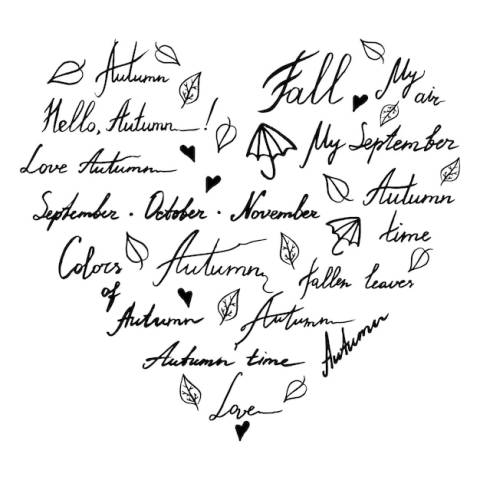 Autumn
Fall
My
air
Hello, Autumn!
My September
Love Autumn
Autumn
time
September · October · November
Colors
of
Autumn
Autumn
Fallen leaves
Autumn
Autumn
Autumn time
Love